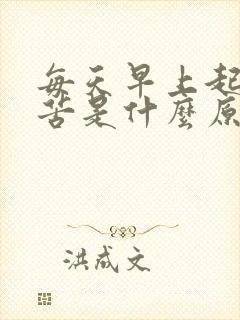 每天早上起
苦是什麼原
洪成文